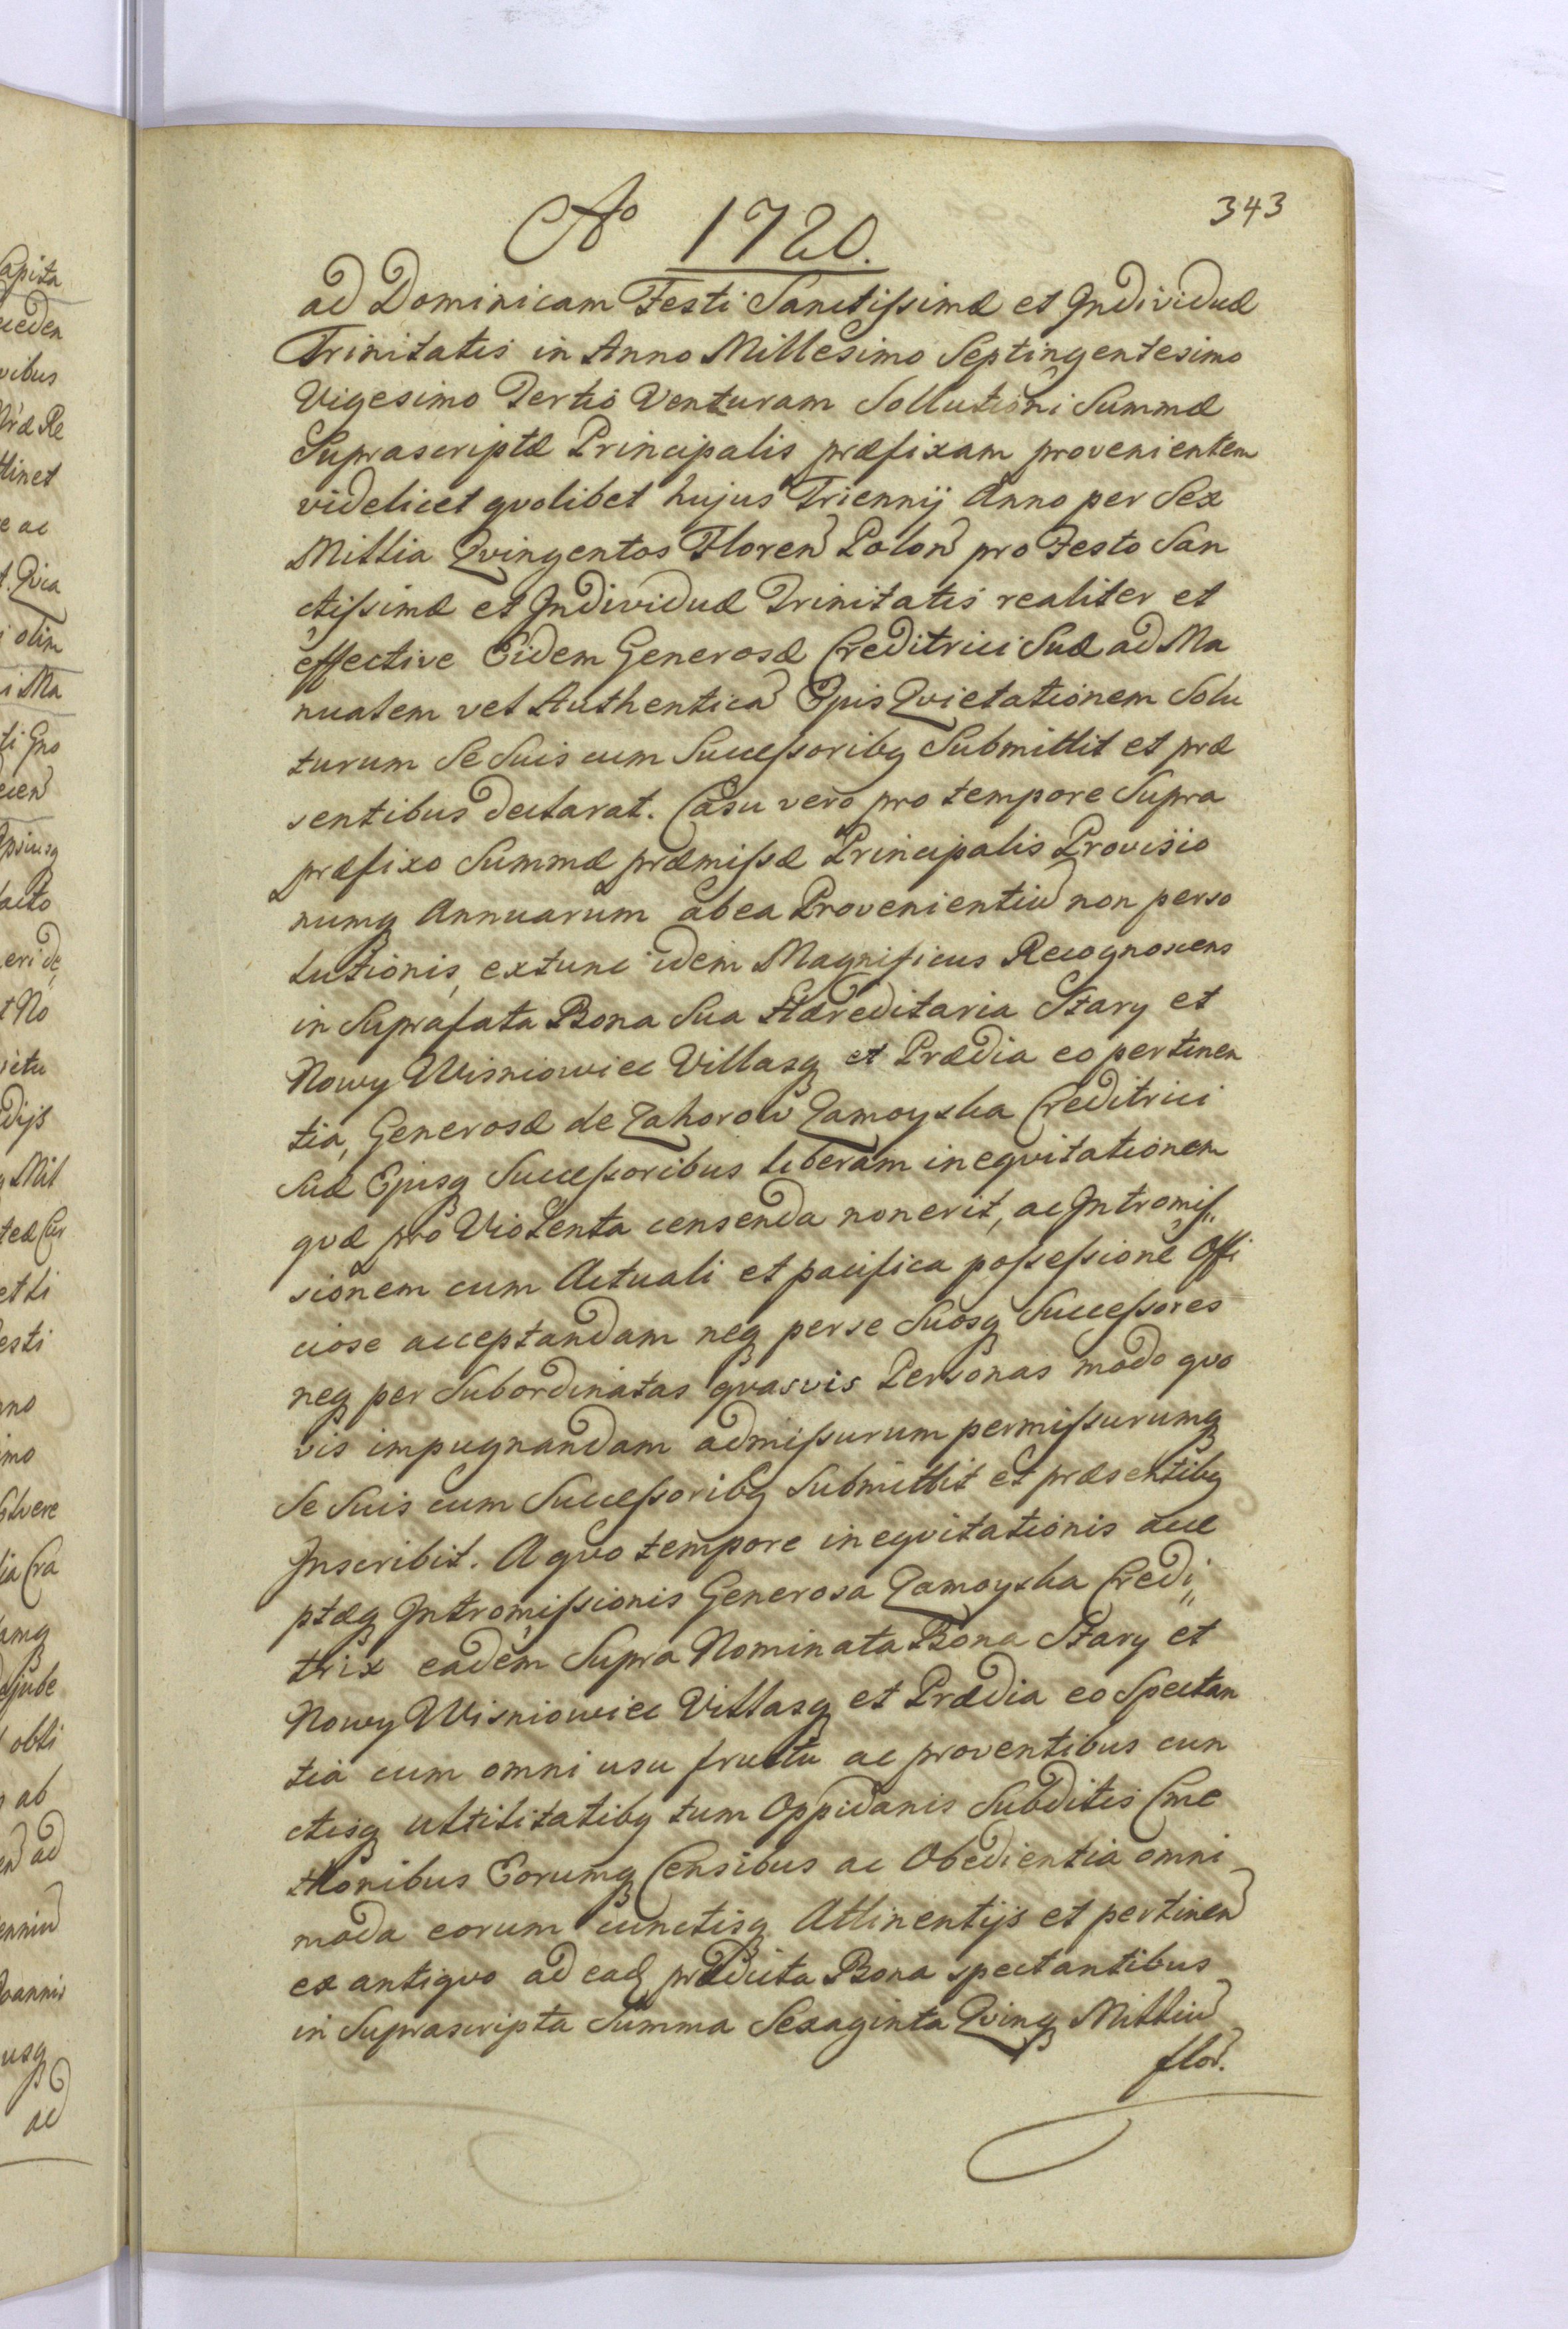 343
Aº 1720.
ad Dominicam Festi Sanctissimæ et Individuæ
Trinitatis in Anno Millesimo Septingentesimo
Vigesimo Tertio Venturam Sollutioni Summæ
Suprascriptæ Principalis præfixam provenientem
videlicet qvolibet hujus Triennij Anno per Sex
Millia Qvingentos Floren Polon pro Festo San
ctissimæ et Individuæ Trinitatis realiter et
effective Eidem Generosæ Creditrici Suæ ad Ma
nualem vel Authentica Ejus Qvietationem Solu
turum Se Suis cum Successoribq Submittit et præ
sentibus declarat. Casu vero pro tempore Supra
præfixo Summæ præmissæ Principalis Provisio
numq Annuarum ab ea Provenientiu non perso
lutionis, extunc idem Magnificus Recognoscens
in Suprafata Bona Sua Hæreditaria Stary et
Nowy Wisniowiec Villasq et Prædia eo pertinen
tia, Generosæ de Zahorow Zamoyska Creditrici
Suæ Ejusq Successoribus liberam ineqvitationem
qvæ pro Violenta censenda non erit, ac Intromis„
sionem cum Actuali et pacifica possessione Offi
ciose acceptandam neq per se Suosq Successores
neq per Subordinatas qvasvis Personas modo qvo
vis impugnandam admissurum permissurumq
Se Suis cum Successoribq Submittit et præsentibq
Inscribit. A qvo tempore ineqvitationis acce
ptæq Intromissionis Generosa Zamoyska Credi„
trix eadem Supra Nominata Bona Stary et
Nowy Wisniowiec Villasq et Prædia eo Spectan
tia cum omni usu fructu ac proventibus cun
ctisq Utilitatibq tum Oppidanis Subditis Cme
thonibus Eorumq Censibus ac Obedientia omni
moda eorum cunctisq Attinentijs et pertinen
ex antiqvo ad eaq prædicta Bona spectantibus
in Suprascripta Summa Sexaginta Qvinq Milliu
flor.